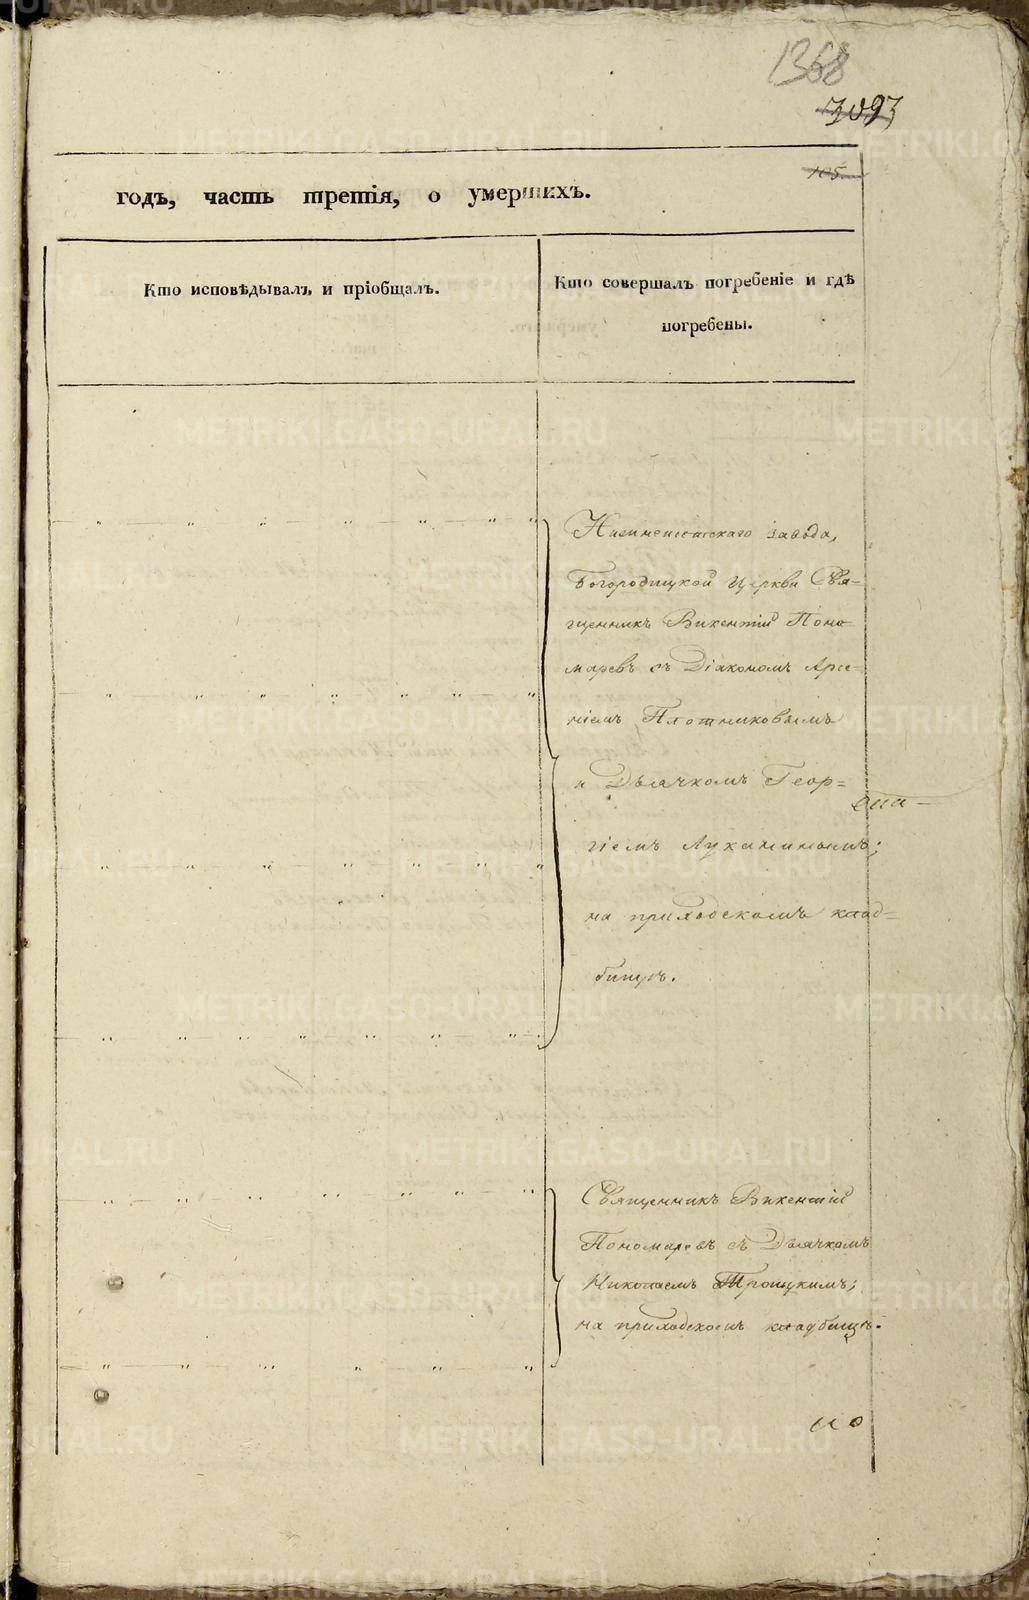 1368
3093
105.
годъ, часть третія, о умершихъ.
Кто исповѣдывалъ и пріобщалъ.
Кто совершалъ погребеніе и гдѣ
погребены.
завода,
Богородицкой Церкви Свя=
щенникъ Викентій Поно
маревъ съ Діакономъ Арсе=
ніемъ Плотниковымъ
и Дьячкомъ Геор=
гіемъ Луканинымъ;
на приходскомъ клад=
бищѣ.
Священникъ Викентій
Пономаревъ съ Дьячкомъ
Николаемъ Троицкимъ;
на приходскомъ кладбищѣ.
по
METRIKI.GASO-URAL.RU